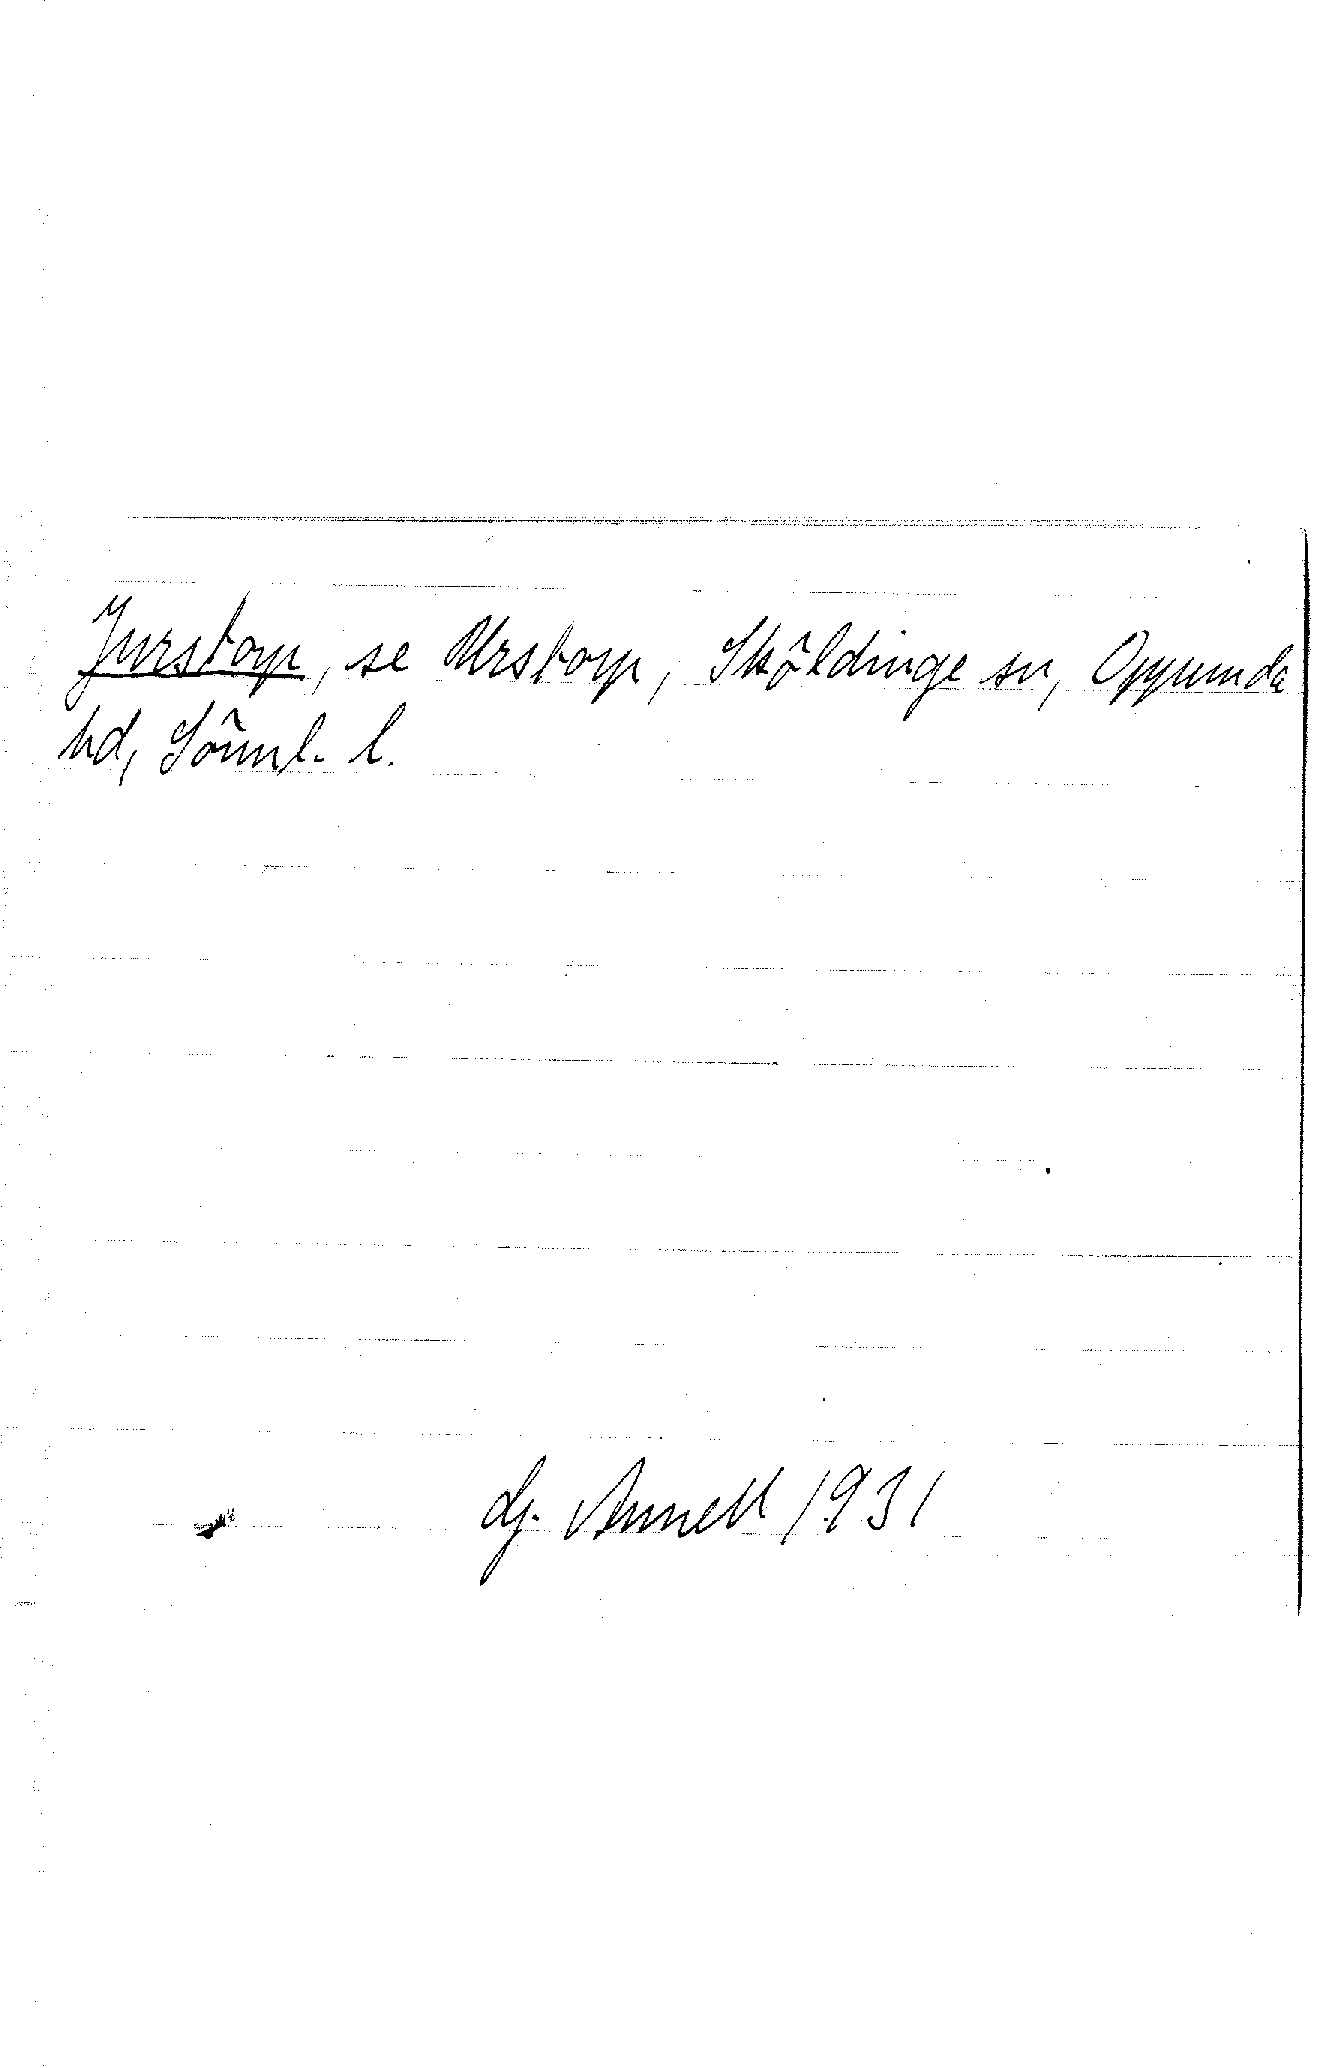 Jurstorp, se Urstorp, Sköldinge sn, Oppunda
hd, Sörml. l.
G. Annell 1931